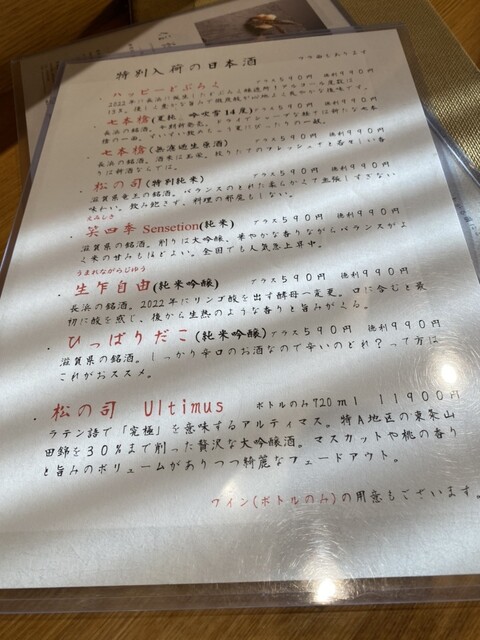 特別入荷の日本酒
ハッピーどぶろく グラス５９０円 徳利９９０円
七本槍(夏純 吟吹雪14度) グラス５９０円 徳利９９０円
七本槍(無濾過生原酒) グラス５９０円 徳利９９０円
長浜の銘酒。
松の司(特別純米) グラス５９０円 徳利９９０円
滋賀県竜王の銘酒。バランスのとれた柔らかくて主張しすぎない
味わい。飲み飽きず、料理の邪魔もしない。
えみしき
笑四季 Sensetion(純米) グラス５９０円 徳利９９０円
滋賀県の銘酒。削りは大吟醸。華やかな香りながらバランスがよ
く米の甘みもほどよい。全国でも人気急上昇中。
うまれながらじゆう
生乍自由(純米吟醸) グラス５９０円 徳利９９０円
長浜の銘酒。2022年にリンゴ酸を出す酵母へ変更。口に含むと最
初に酸を感じ、後から生熟のような香りと旨みがくる。
ひっぱりだこ(純米吟醸) グラス５９０円 徳利９９０円
滋賀県の銘酒。しっかり辛口のお酒なので辛いのどれ？って方は
これがおススメ。
松の司 Ultimus ボトルのみ720ml 11900円
ラテン語で「究極」を意味するアルティマス。特A地区の東条山
田錦を３０％まで削った贅沢な大吟醸酒。マスカットや桃の香り
と旨みのボリュームがありつつ綺麗なフェードアウト。
ワイン(ボトルのみ)の用意もございます。